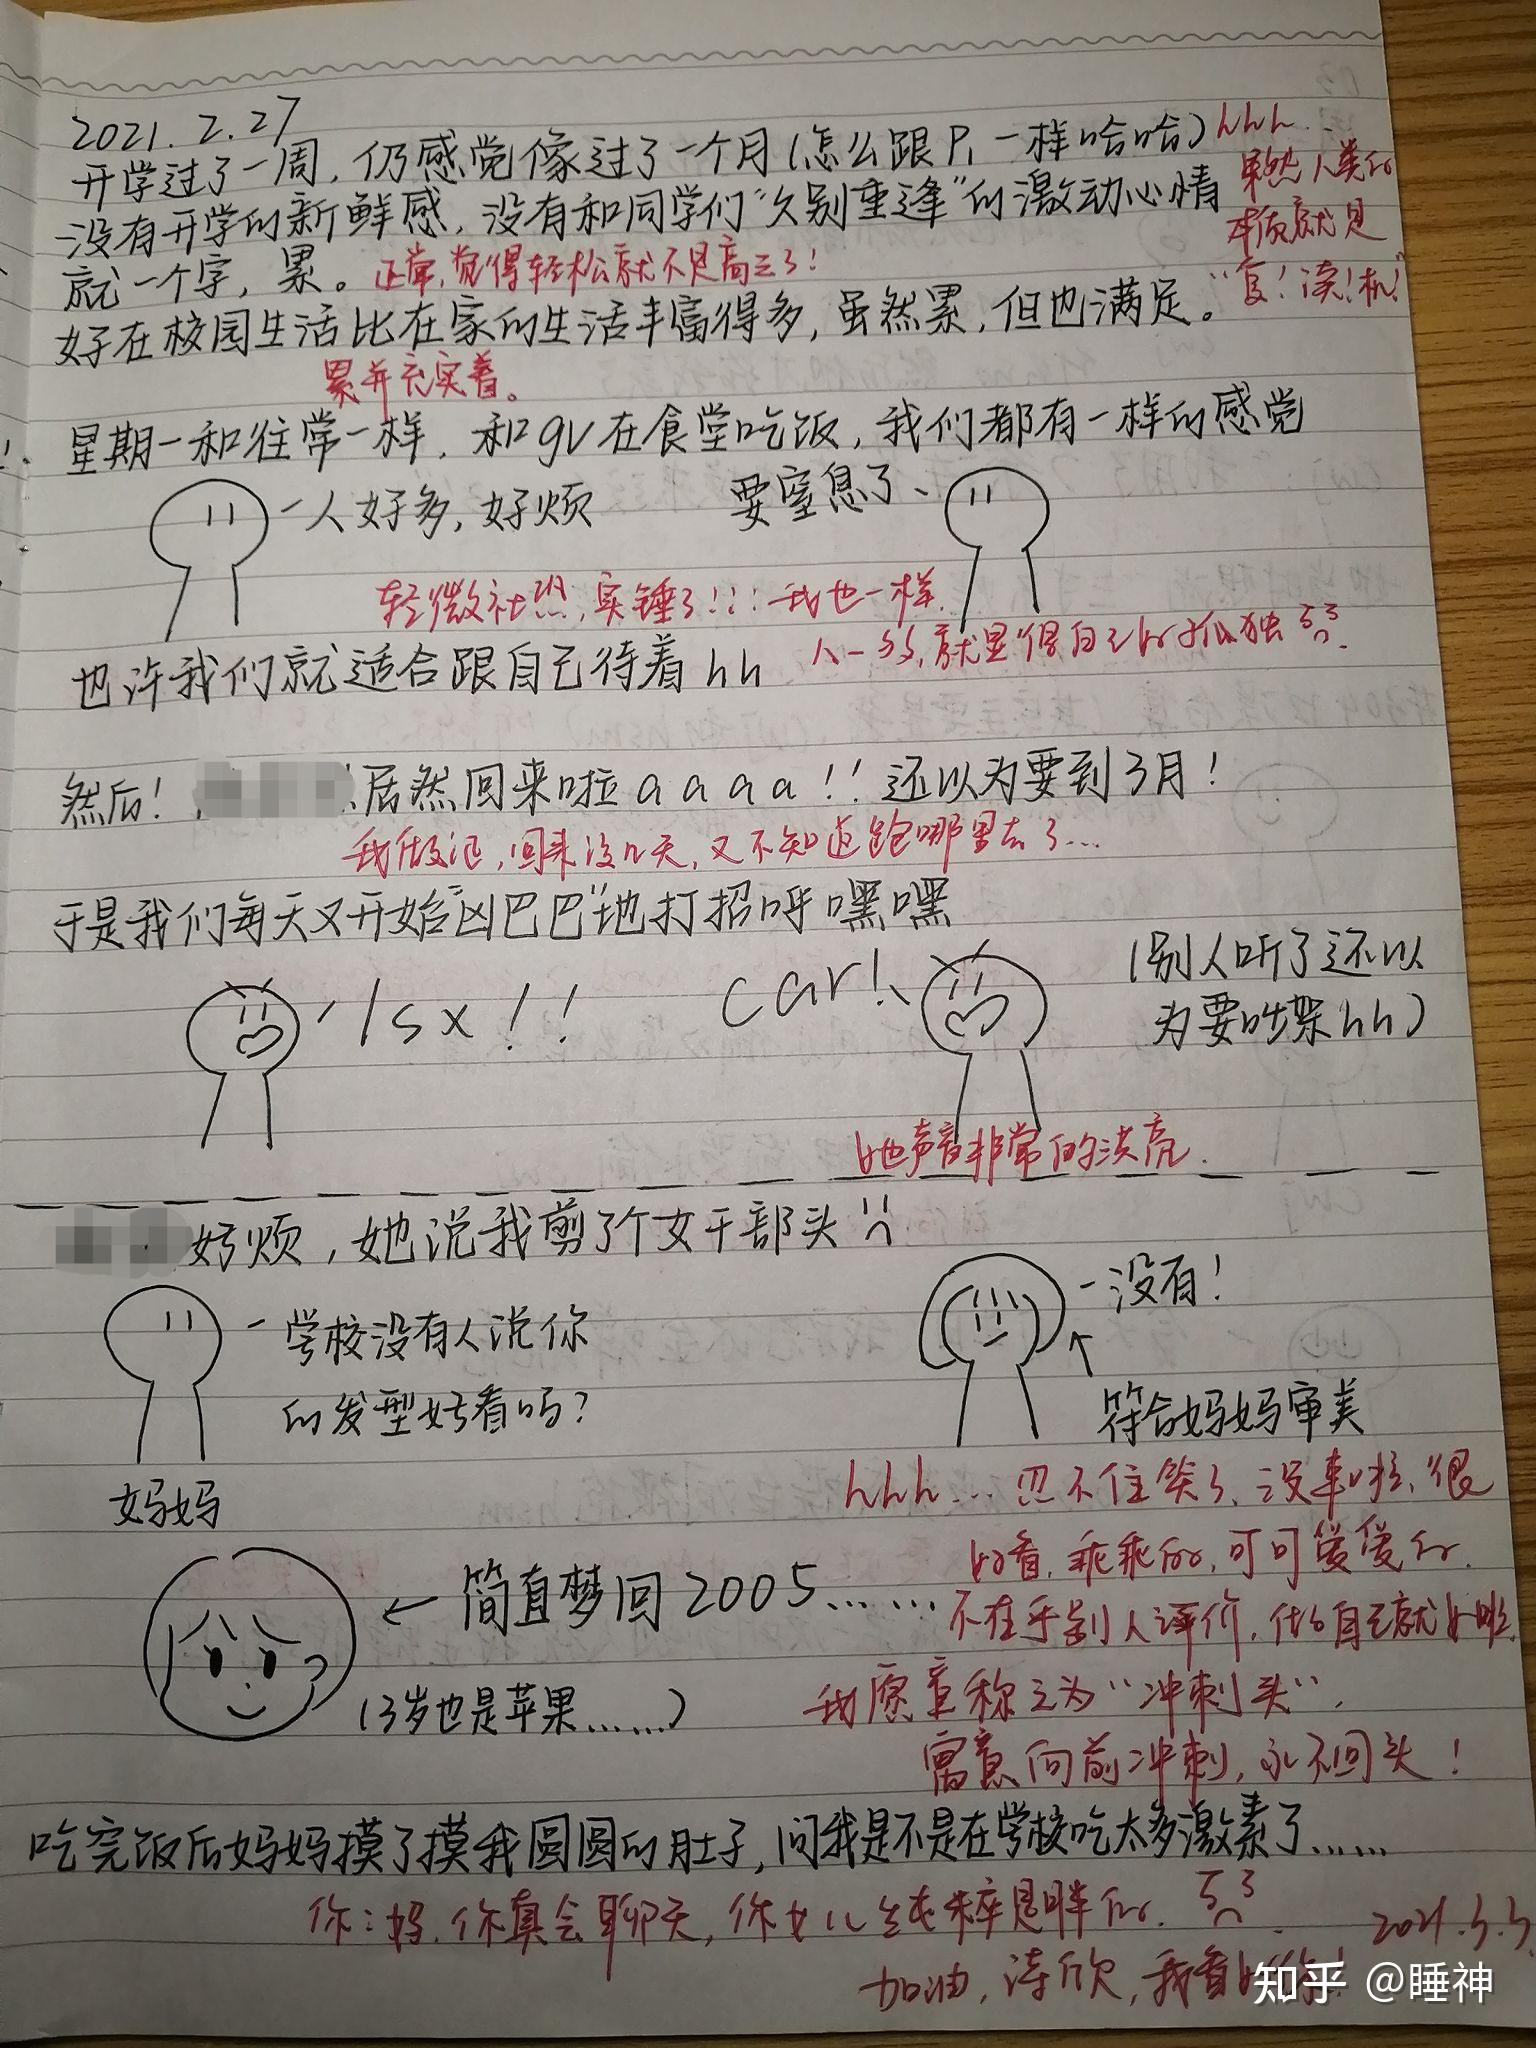 2021.2.27
开学过了一周，仍感觉像过了一个月(怎么跟P1一样哈哈) hhh...
没有开学的新鲜感，没有和同学们"久别重逢"的激动心情 果然人类的
本质就是
就一个字，累。正常，觉得轻松就不是高三了！
"复！读！机！"
好在校园生活比在家的生活丰富得多，虽然累，但也满足。
累并充实着。
星期一和往常一样，和gv在食堂吃饭，我们都有一样的感觉
人好多，好烦 要窒息了、
轻微社恐，实锤了！！！我也一样
人一多，就显得自己的孤独
也许我们就适合跟自己待着hh
然后！居然回来啦aaaa！！还以为要到3月！
我做证，回来没几天，又不知道跑哪里去了...
于是我们每天又开始"凶巴巴"地打招呼嘿嘿
lsx！！ car！ (别人听了还以
为要吵架hh)
她声音非常的洪亮.
好烦，她说我剪了个女干部头
学校没有人说你
的发型好看吗？
没有！
符合妈妈审美
妈妈
hhh... 忍不住笑了，没事啦，很
好看，乖乖的，可可爱爱的.
简直梦回2005......
不在乎别人评价，做自己就好啦
(3岁也是苹果......)
我愿意称之为"冲刺头"，
寓意向前冲刺，永不回头！
吃完饭后妈妈摸了摸我圆圆的肚子，问我是不是在学校吃太多激素了......
你：妈，你真会聊天，你女儿纯粹是胖的.
2021.3.3
加油，涛欣，我看好你！
知乎 @睡神